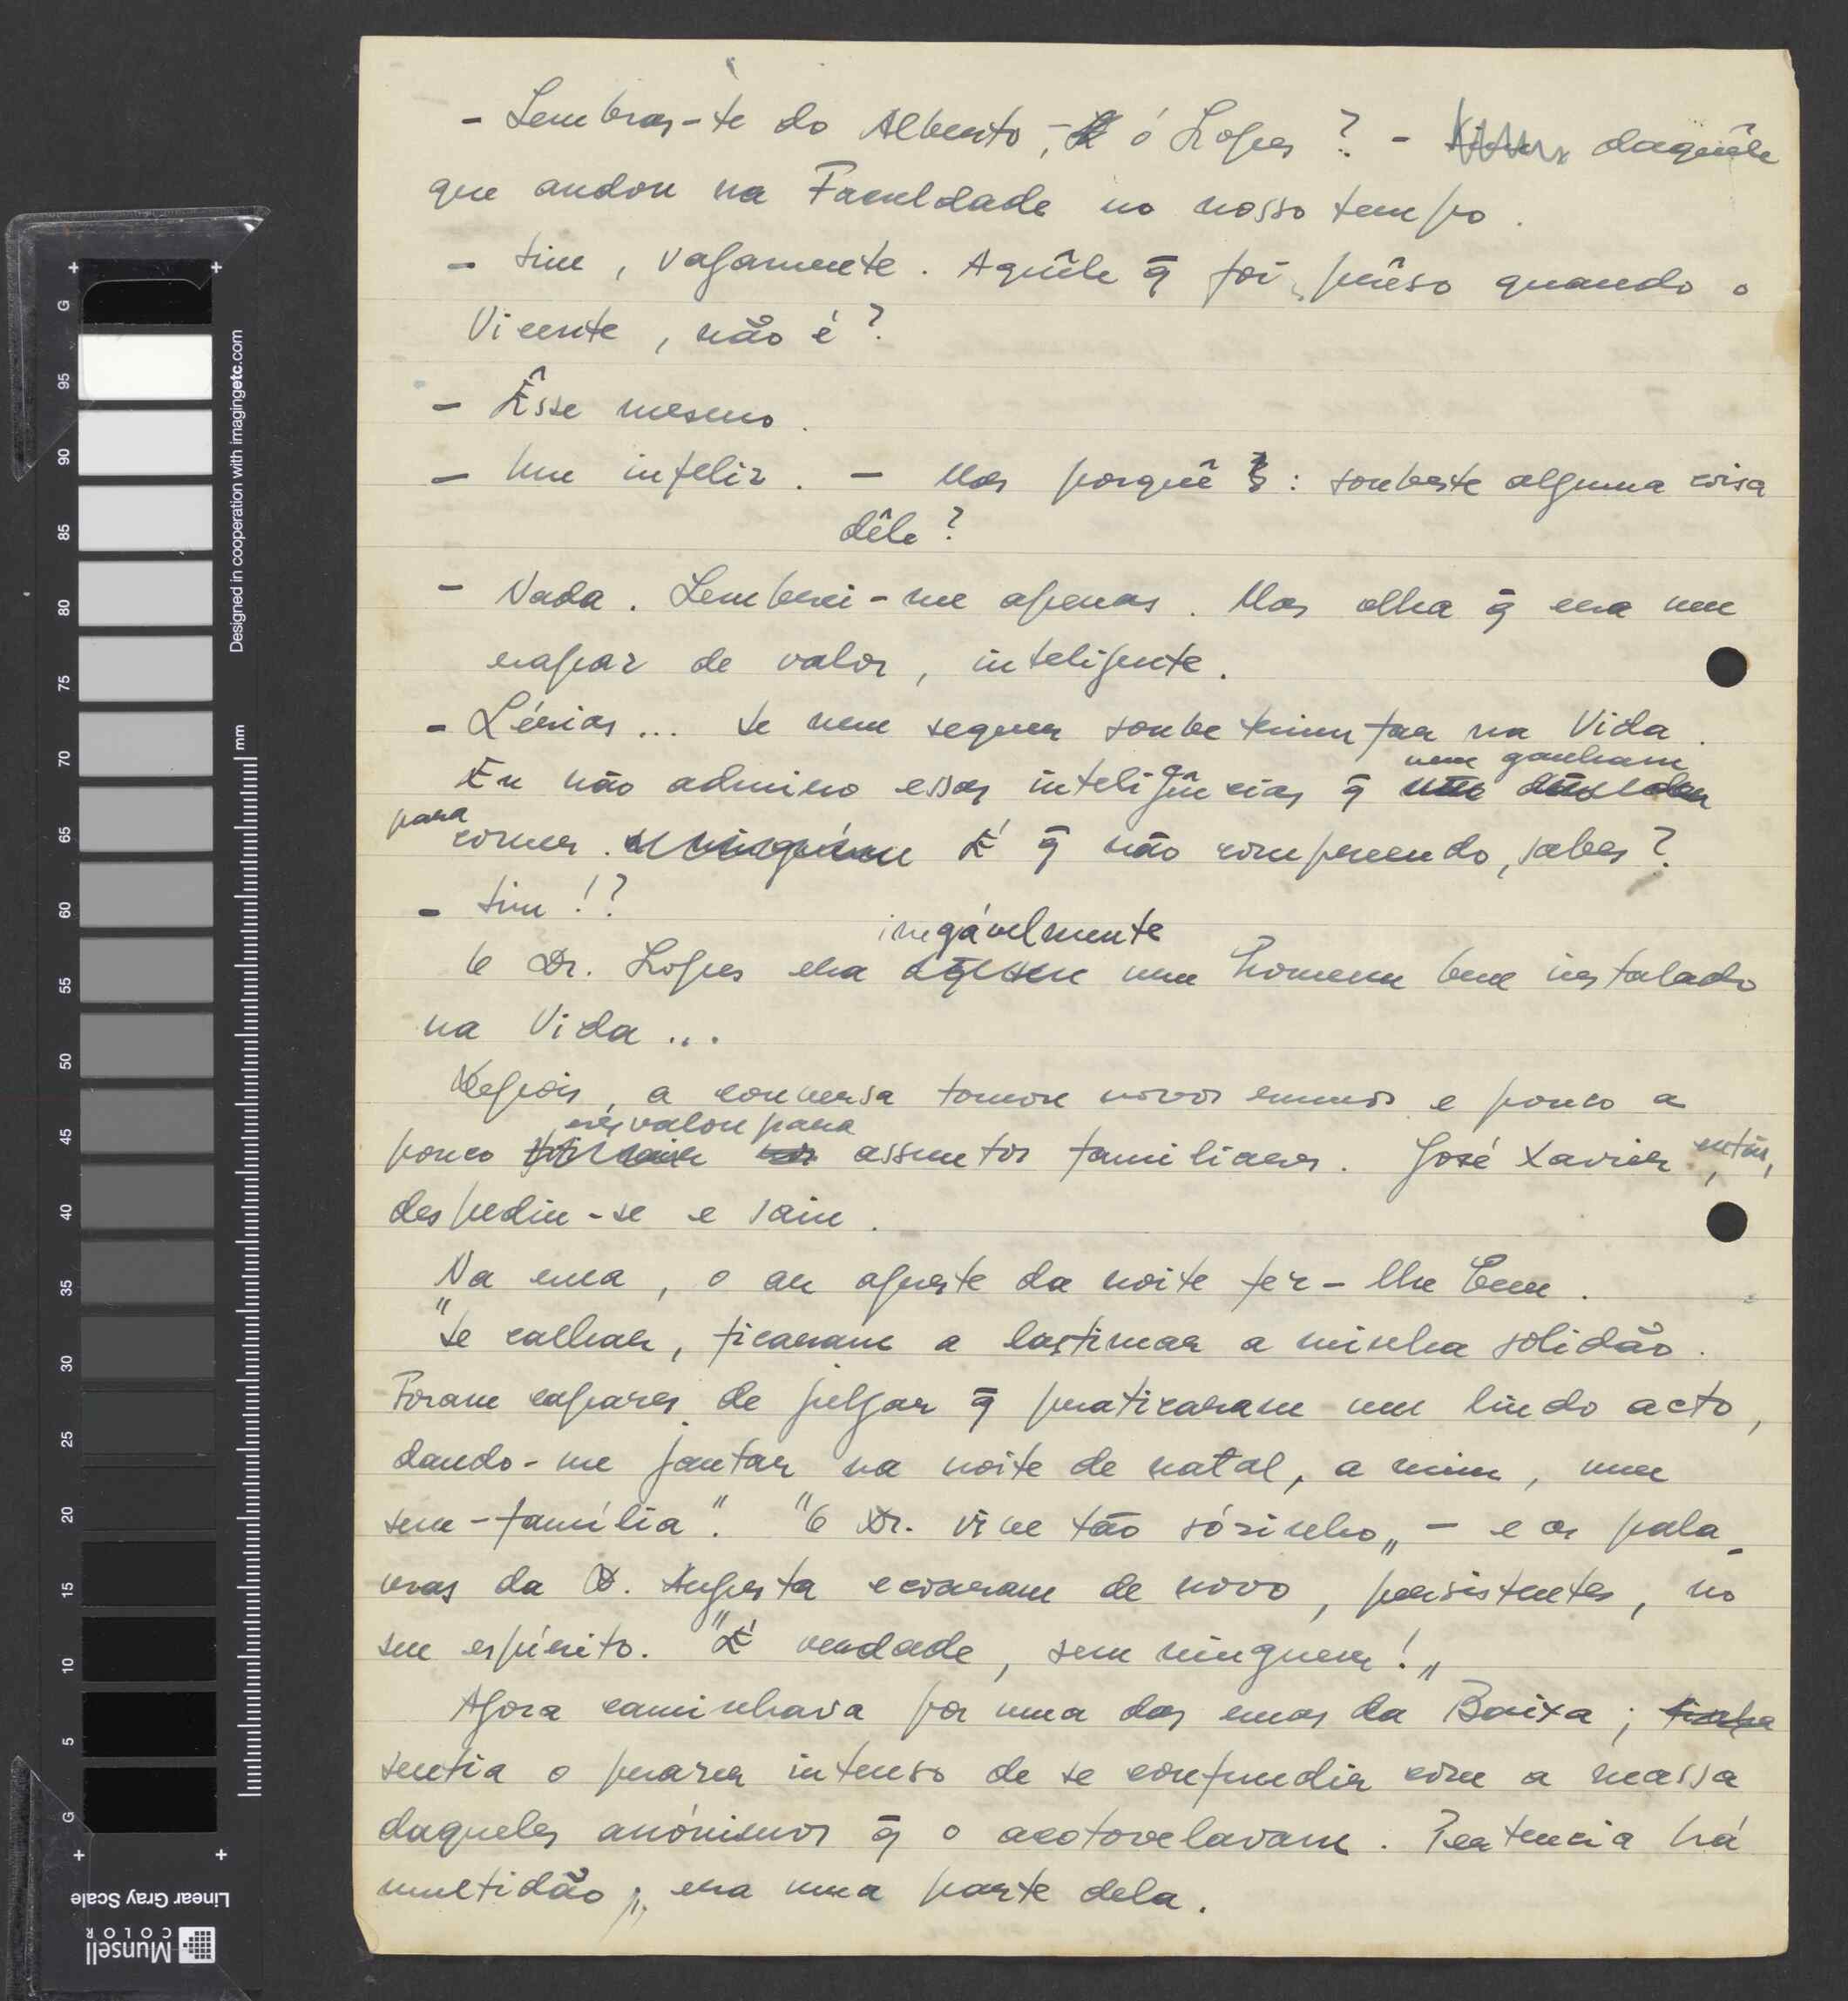 - Lembras-te do Alberto, ó Lopes? - daquêle
que andou na Faculdade no nosso tempo.
- Sim, vagamente. Aquêle q̄ foi prêso quando o
Vicente, não é?
- Êsse mesmo.
- Um infeliz. - Mas porquê: soubeste alguma coisa
dêle?
- Nada. Lembrei-me apenas. Mas olha q̄ era um
rapaz de valor, inteligente.
- Lérias... Se nem sequer soube triunfar na Vida.
nem ganham
Eu não admiro essas inteligências q̄
para
comer. É q̄ não compreendo, sabes?
- Sim!?
inegávelmente
O Dr. Lopes era um homem bem instalado
na Vida...
Depois, a conversa tomou novos rumos e pouco a
resvalou para
pouco assuntos familiares. José Xavier, então,
despediu-se e saiu.
Na rua, o ar agreste da noite fêz-lhe bem.
"Se calhar, ficaram a lastimar a minha solidão.
Foram capazes de julgar q̄ praticaram um lindo acto,
dando-me jantar na noite de natal, a mim, um
sem-família". "O Dr. vive tão sózinho" - e as pala-
vras da D. Augusta ecoaram de novo, persistentes, no
seu espírito. "É verdade, sem ninguem!"
Agora caminhava por uma das ruas da Baixa;
sentia o prazer intenso de se confundir com a massa
daqueles anónimos q̄ o acotovelavam. Pertencia há
multidão; era uma parte dela.
Designed in cooperation with imagingetc.com
mm
+ +
G
95
90
85
80
75
70
65
60
55
50
45
40
35
30
25
20
15
10
5
G
+ +
Linear Gray Scale
Munsell
COLOR